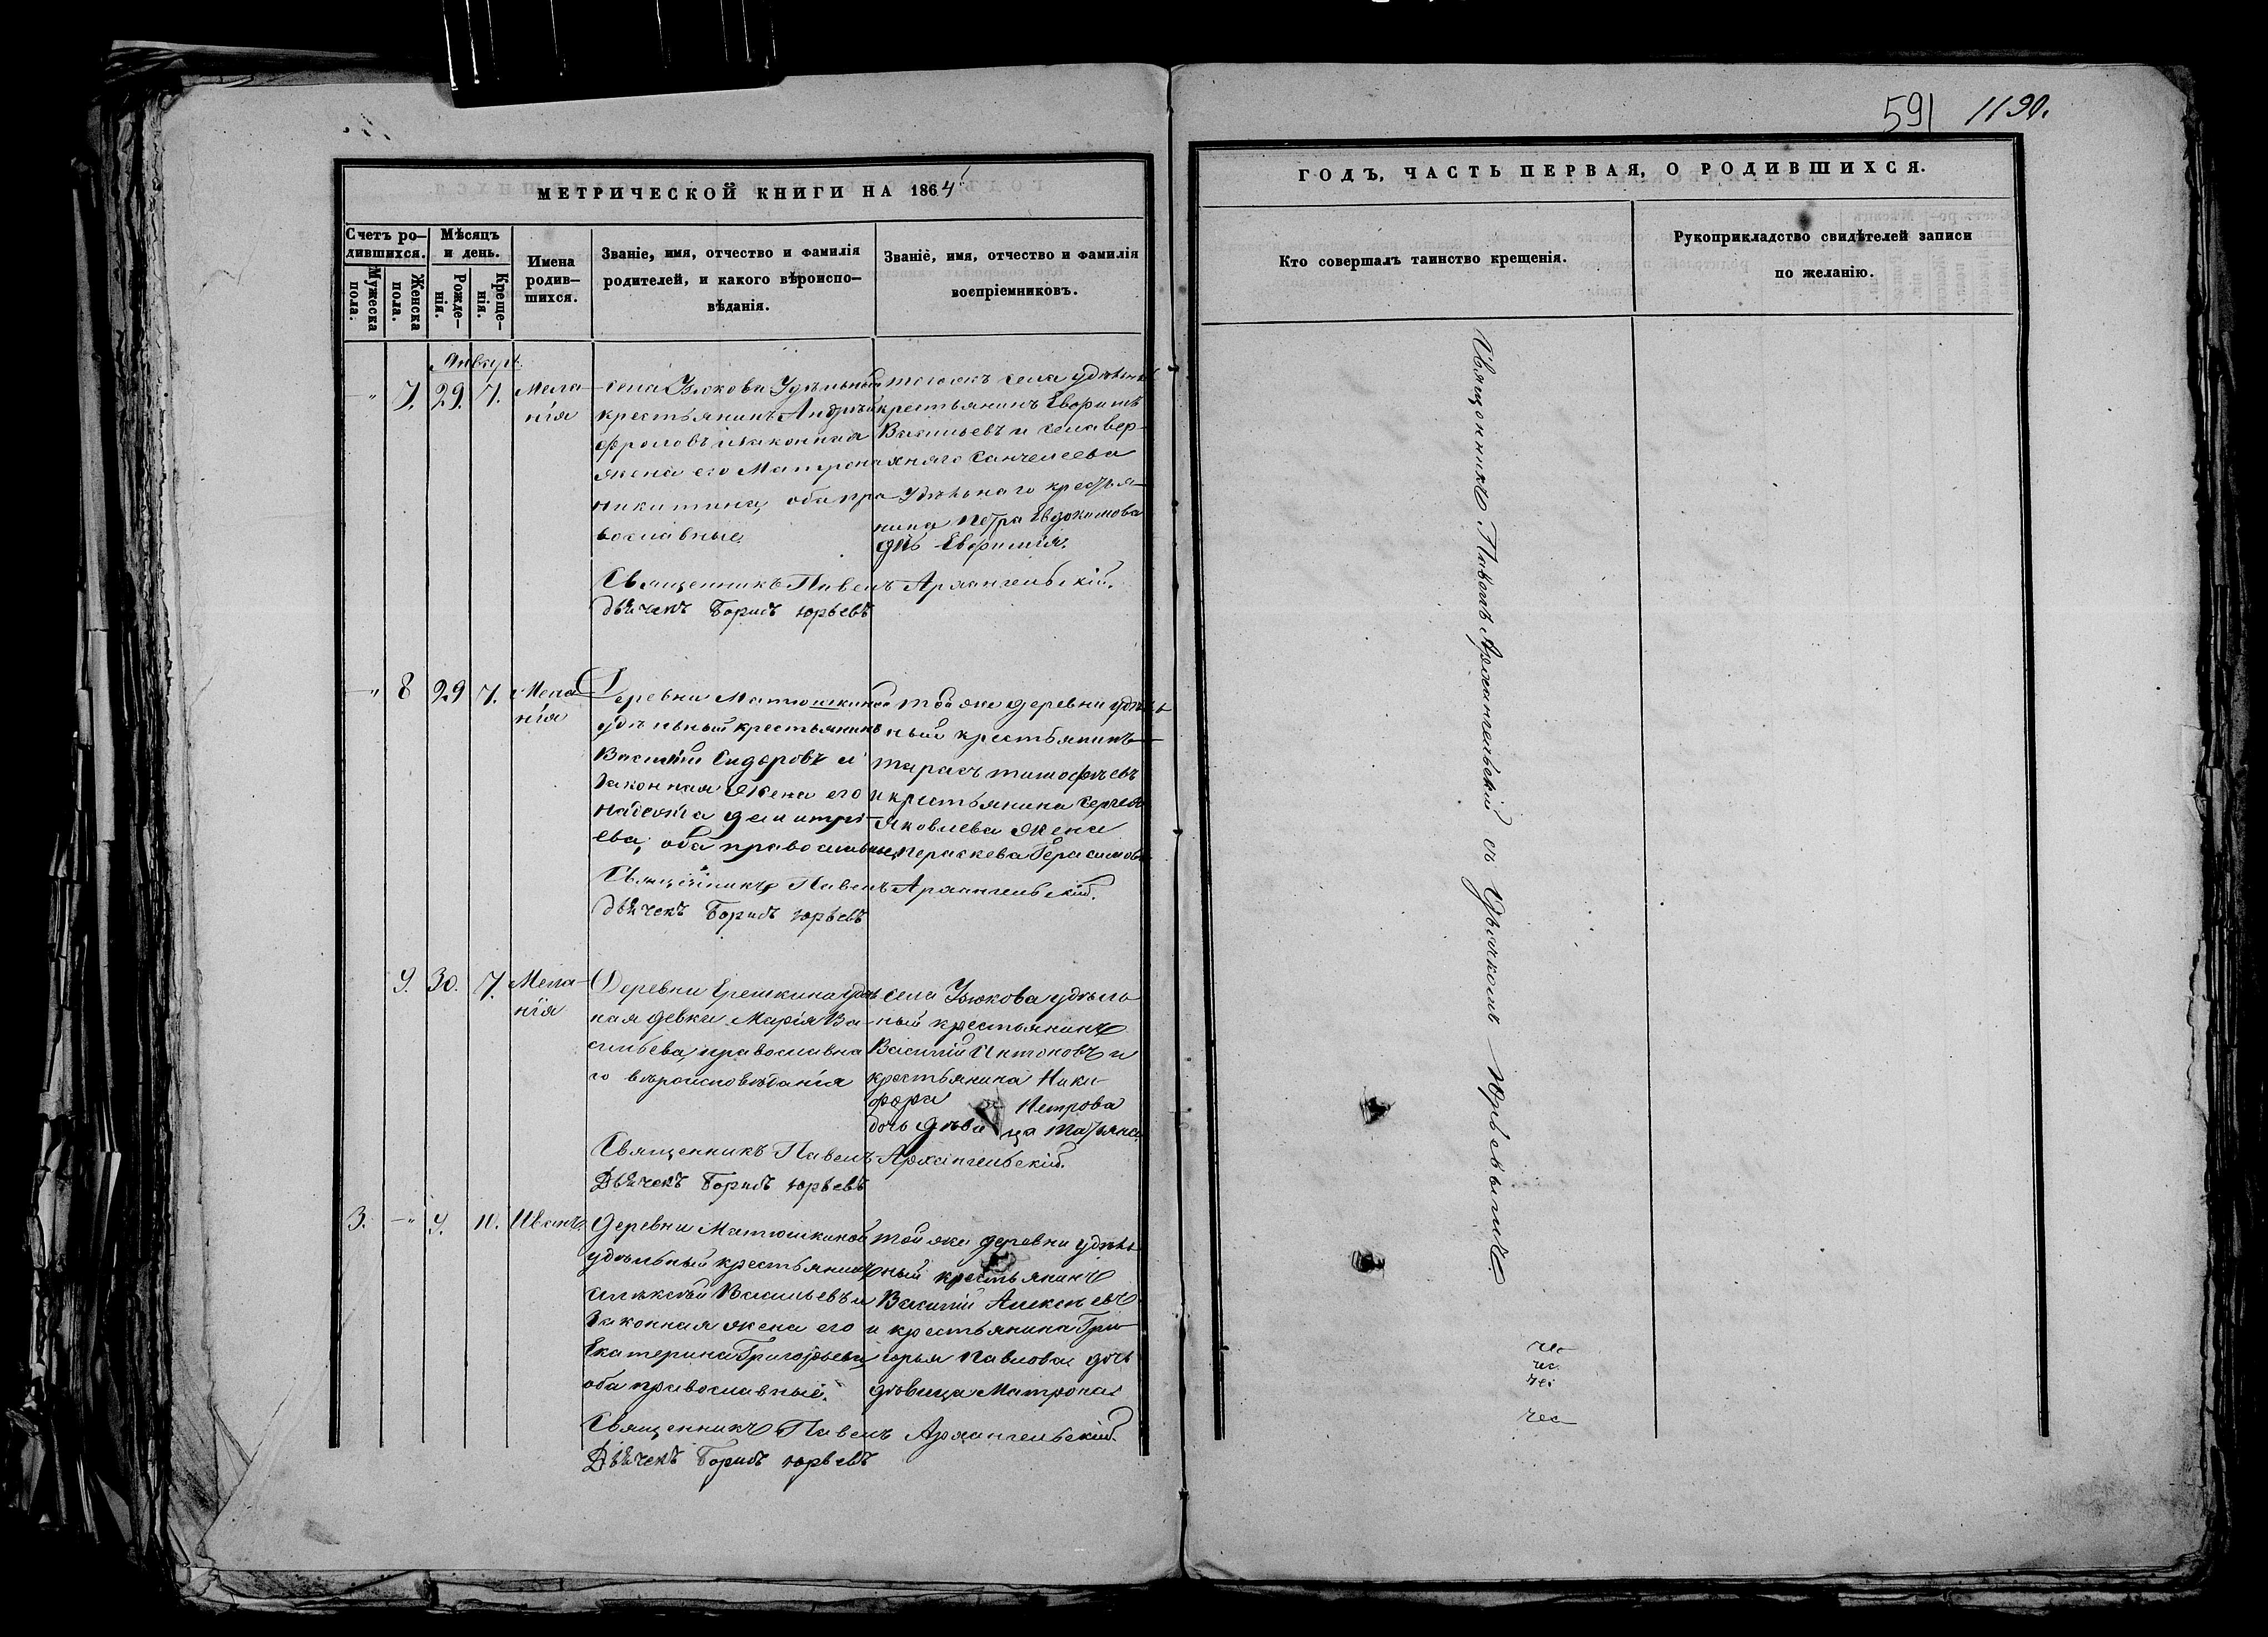 591 1190.
МЕТРИЧЕСКОЙ КНИГИ НА 1864
ГОДЪ, ЧАСТЬ ПЕРВАЯ, О РОДИВШИХСЯ.
Счетъ ро-
дившихся.
Мужеска
пола.
Женска
пола.
Мѣсяцъ
и день.
Рожде-
нія.
Креще-
нія.
Имена
родив-
шихся.
Званіе, имя, отчество и фамилія
родителей, и какого вѣроиспо-
вѣданія.
Званіе, имя, отчество и фамилія
воспріемниковъ.
Кто совершалъ таинство крещенія.
Рукоприкладство свидѣтелей записи
по желанію.
Январь
— " 7. 29. 7. Мела-
нія
села Узюкова Удѣльный
крестьянинъ Андрей
Фроловъ и законная
жена его Матрона
Никитина, оба пра-
вославные
тогожъ села удѣльный
крестьянинъ Евфимъ
Васильевъ и села Вер-
хняго Санчелеева
Удѣльнаго крестья-
нина Петра Евдокимова
дочь Евфимія.
Священникъ Павелъ Архангельскій.
Дьячекъ Борисъ Юрьевъ
— " 8 29 7. Мела-
нія
Деревни Матюшкиной
удѣльный крестьянинъ
Василій Сидоровъ и
законная жена его
Надежда Димитрі-
ева, оба православные,
той же деревни удѣль-
ный крестьянинъ
Тарасъ Тимофѣевъ
и крестьянина Сергея
Яковлева жена
Параскева Герасимова
Священникъ Павелъ Архангельскій.
Дьячекъ Борисъ Юрьевъ
9. 30. 7. Мела-
нія
Деревни Ерешкина удѣль-
ная девка Марія Ва-
сильева, православна-
го вѣроисповѣданія
села Узюкова удѣль-
ный крестьянинъ
Василій Антоновъ и
крестьянина Ники-
фора Петрова
дочь дѣвица Татьяна.
Священникъ Павелъ Архангельскій.
Дьячекъ Борисъ Юрьевъ
3. — " 9. 10. Иванъ.
Деревни Матюшкиной
удѣльный крестьянинъ
Алексѣй Васильевъ и
законная жена его
Екатерина Григорьева,
оба православные.
той же деревни удѣль-
ный крестьянинъ
Василій Алексѣевъ
и крестьянина Гри-
горья Павлова дочь
дѣвица Матрона
Священникъ Павелъ Архангельскій.
Дьячекъ Борисъ Юрьевъ
Священникъ Павелъ Архангельскій съ Дьячкомъ Юрьевымъ